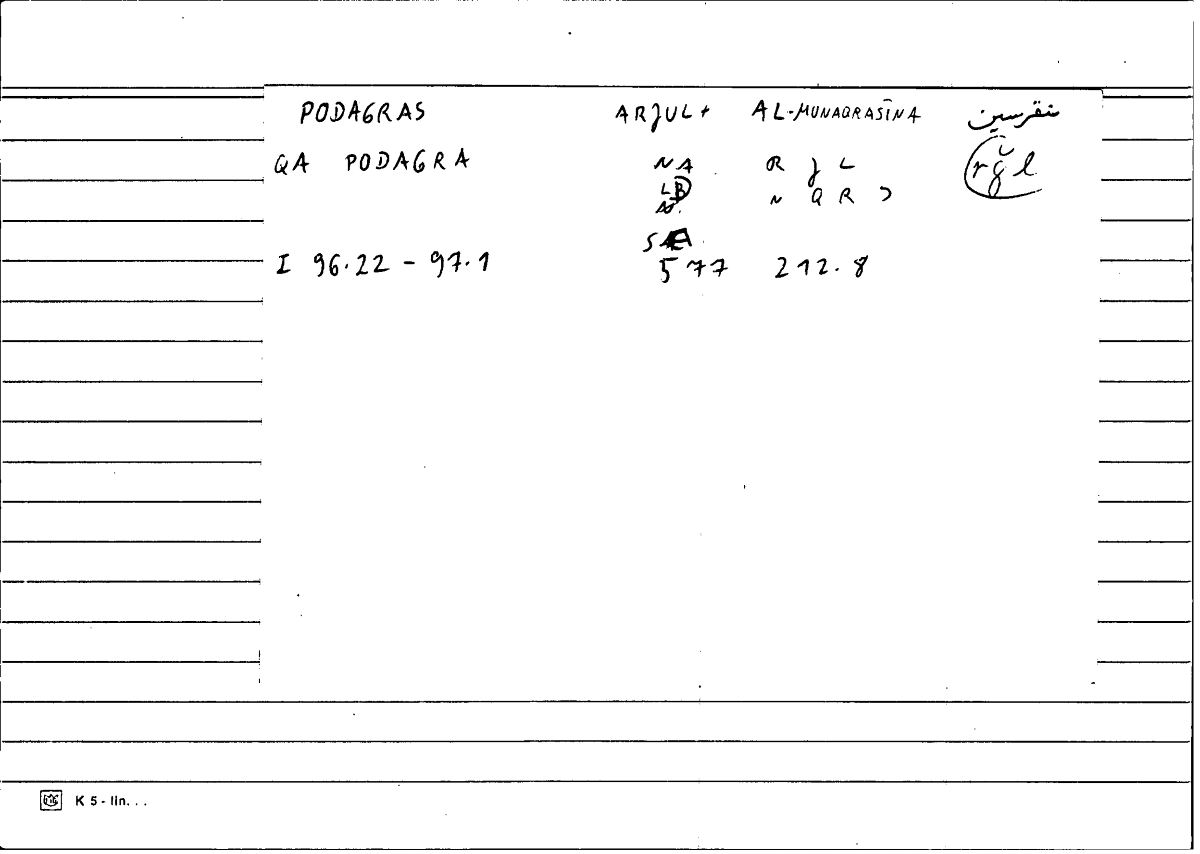 PODAGRAS ARJUL+ AL-MUNAQRASĪNA منقرسين
QA PODAGRA NA R J L rǧl
LB N Q R S
I 96.22 - 97.1 577 212.8
K 5 - lin. . .